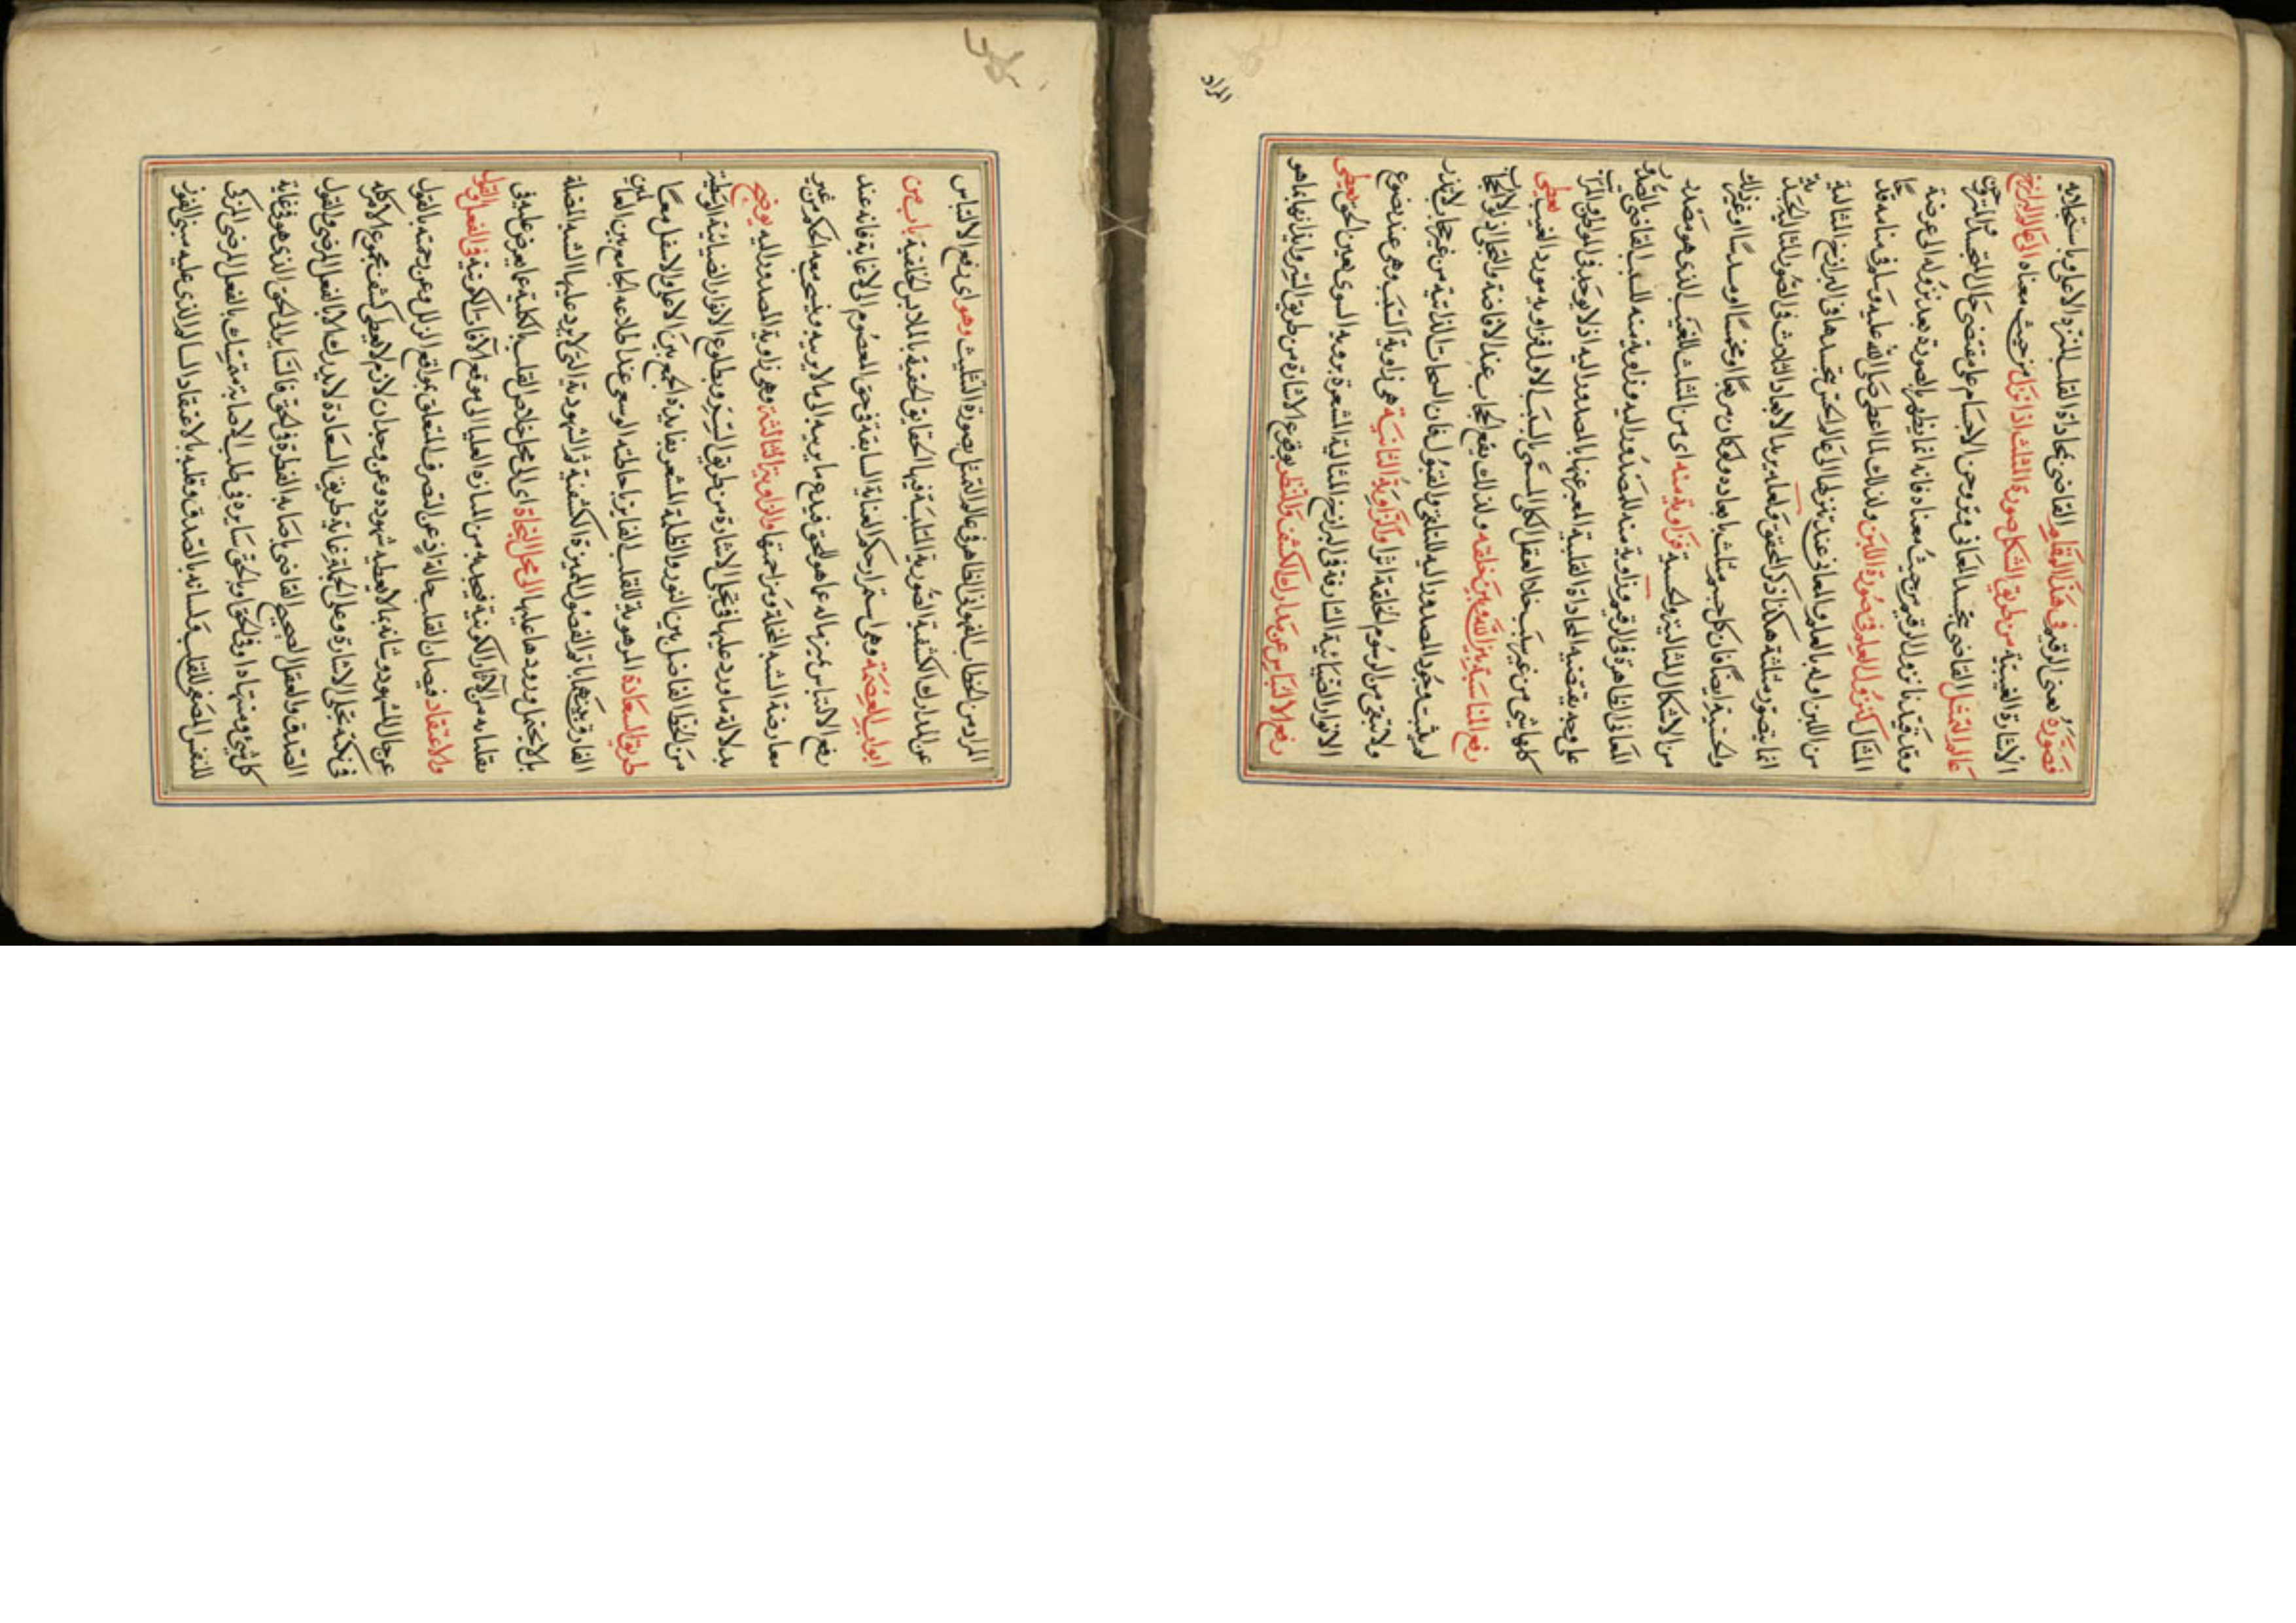 فصورة معنى الرقيم في هذا المقام القاضي بمحاذاة القلب للمنزه الاعلى وباستجلائه
الاشارة الغيبية من طريق الشكل صورة المثلث اذا نزل من حيث معناه الى عالم البرازخ
عالم التمثل القاضي بتجسد المعاني وتروحن الاجسام على مقتضى حال المتجسد والمتروحن
وقد قيدنا نزول الرقيم من حيث معناه فانه انما يظهر بالصورة بعد نزوله الى عرصة
المثال كنزول العلم في صورة اللبن ولذلك لما اعطي صلى الله عليه وسلم في منامه قدحا
من اللبن اوله بالعلم والمعاني عند تنزلها الى عالم الحس تجسدها في البرازخ المثالية
انما يتصور مثلثة هكذا ذكر المحقق ولعله يريد الابعاد الثلاث في الصور المثالية الجسدية
والحسية ايضا فان كل جسم مثلث بابعاده ولو كان مربعا او مخمسا او مسدسا او غير ذلك
من الاشكال المثالية والحسية فزاوية منه اي من المثلث للغيب الذي هو مصدر
المعاني الظاهرة في الرقيم وزاوية منه للمصدور اليه وزاوية منه للسبب القاضي بالصدور
على وجه يقتضيه المحاذاة القلبية المعبر عنها بالمصدور اليه اذ لا يوجد في المواطن والمراتب
كلها شيء من غير سبب خلا العقل الكل المسمى بالسبب الاول فزاوية مورد الغيب تعطي
رفع المناسبة بين الله وبين خلقه ولذلك يقع الحجاب عند الافاضة والتجلي اذ لولا الحجاب
لم يثبت وجود المصدور اليه للتلقي والقبول فان السبحات الذاتية من غير حجاب لا تذر
ولا تبقي من الرسوم الخلقية اثرا والزاوية الثانية هي زاوية السبب وهي عند نصوع
الانوار الضيائية الشارقة في البرازخ المثالية المشعرة برؤية السوى بعين الحق تعطي
رفع الالتباس عن مدارك الكشف والنظر بوقوع الاشارة من طريق السر وايذانها بما هو
المراد
المراد من الخطاب الفهواني الظاهر في عالم التمثل بصورة التثليث وهو اي رفع الالتباس
عن المدارك الكشفية الصورية الملتبسة فيها الحقايق الحقية بالملابس الخلقية باب من
ابواب العصمة وهي استمرار حكم العناية السابقة في حق المعصوم الى لا غاية فانه عند
رفع الالتباس يميز ماله عما هو للحق فيدع ما يريبه الى ما لا يريبه وينسحب معه الحكم من غير
معارضة الشبه المخلة ومزاحمتها والزاوية الثالثة وهي زاوية المصدور اليه يوضح
بدلالة ما ورد عليها في تجلي الاشارة من طريق السر وبطلوع الانوار الضيائية الوسطية
من الخط الفاصل بين النور والظلمة المشعر بفايدة الجمع بين الاعلى والاسفل معا
طريق السعادة المرهوبة للقلب الفايز باحاطته الوسعى عند اطلاعه الجامع بين العالمين
الفارق بينهما باتم الفصول المميزة الكشفية ثم الشهودية التي لا يرد عليها الشبه المضلة
بل لا يحتمل ورودها عليها الى محل النجاة اي الى محل خلاص القلب بالكلية عما يعرض عليه في
تقلباته من الآثار الكونية فيجذبه من المنازه العليا الى موقع الآفات الكونية في الفعل والقول
والاعتقاد فيصان القلب حالتئذ عن التصرف المتعلق بمواقع الزلل وعن رحمته بالقول
عن حال المشهود وشانه بما لا يعطيه شهوده وعن وجدان لازم لا يعطي كشف مجموع الامر كله
في نكتة تجلي الاشارة وعلى الجملة غاية طريق السعادة لا يدرك الا بالفعل المرضي والقول
الصدق والعقل الصحيح القاضي باصابة الفطرة في الحق فالسابر الى الحق الذي هو في غاية
كل شيء ومنتهاه او في الحق او بالحق سايره في طلب الاصابة متمسك بالفعل المرضي المزكي
للنفس المصفي للقلب ولسانه بالصدق وقلبه بالاعتقاد السالم الذي عليه مبنى الفوز